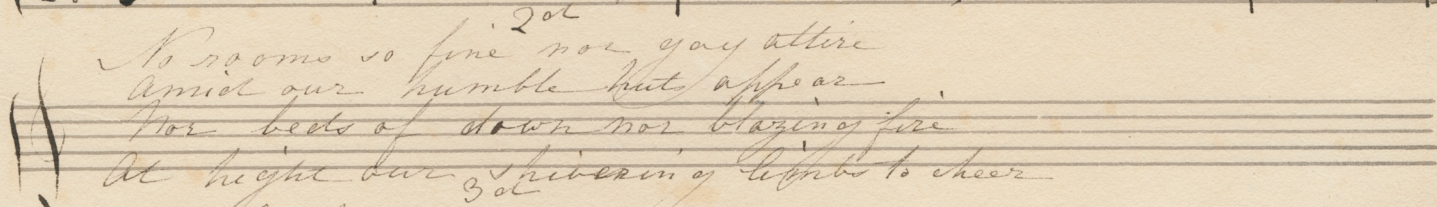 2d
No rooms so fine nor gay attire
Amid our humble huts appear
Nor beds of down nor blazing fire
At hight our shivering limbs to cheer
3d